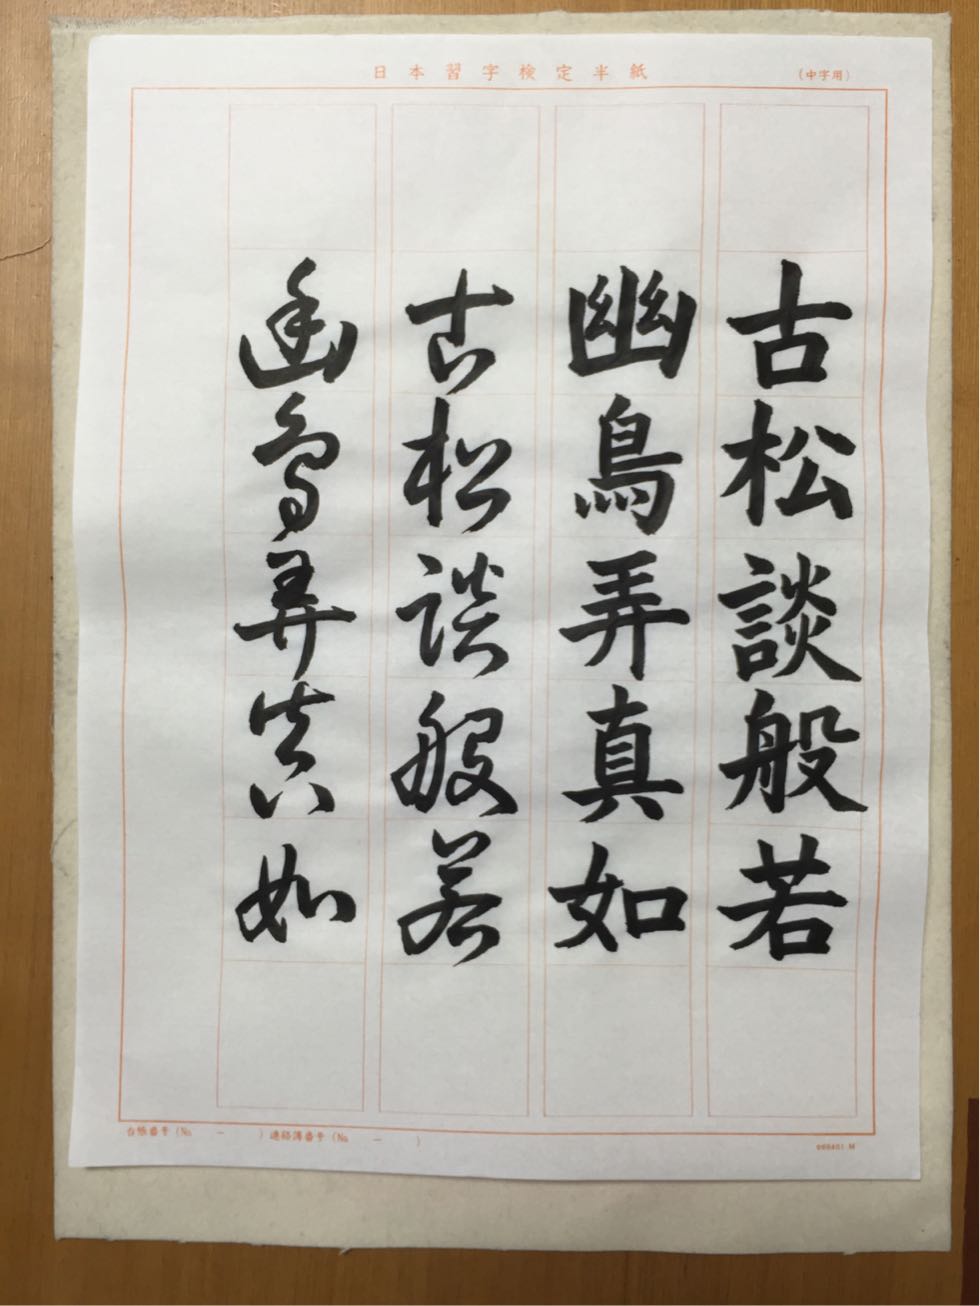 日本習字検定半紙
(中字用)
古松談般若
幽鳥弄真如
古松談般若
幽鳥弄真如
台帳番号(No. － )連絡簿番号(No. － )